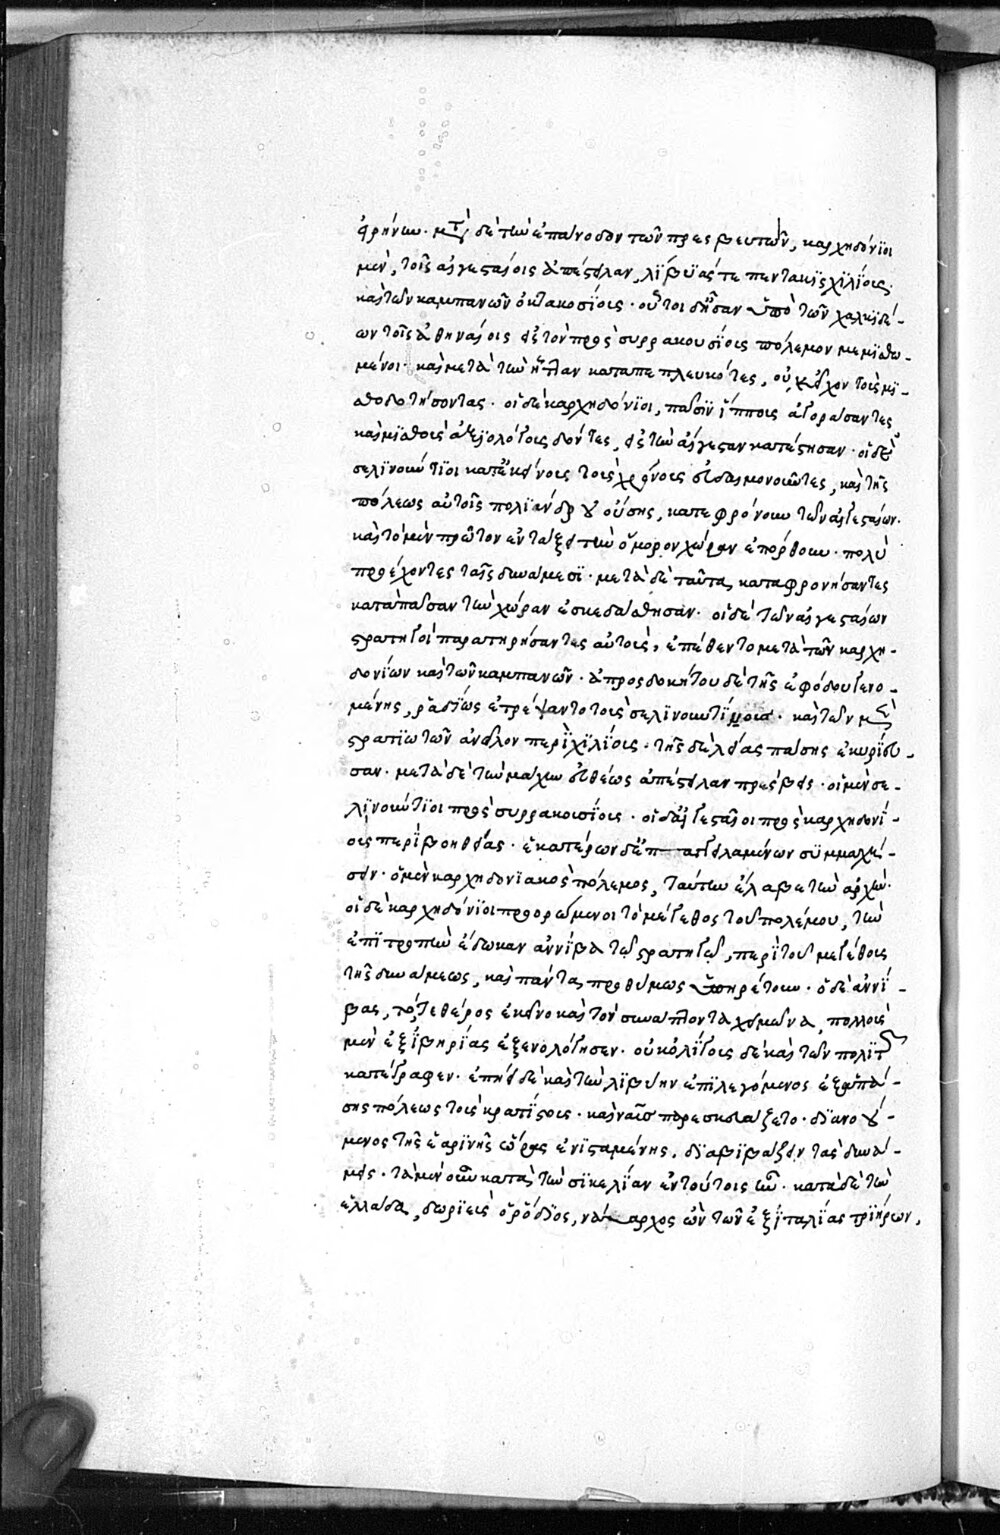 φρήνων. μετὰ δὲ τὴν ἐπάνοδον τῶν πρεσβευτῶν, καρχηδόνϊοι
μὲν, τοῖς αἰγεσταίοις ἀπέστειλαν, λίβυάς τε πεντακισχϊλίοις.
καὶ τῶν καμπανῶν ὀκτακοσίοις. οὗτοι δ' ἦσαν ὑπὸ τῶν χαλκϊδέ-
ων τοῖς ἀθηναίοις εἰς τὸν πρὸς συρρακουσΐοις πόλεμον μεμϊσθω-
μένοι. καὶ μετὰ τὴν ἧτταν καταπεπλευκότες, οὐκ εἶχον τοὺς μϊ-
σθοδοτήσοντας. οἱ δὲ καρχηδόνϊοι, πᾶσϊν ἵπποις ἀγοράσαντες
καὶ μϊσθοὺς ἀξϊολόγους δόντες, εἰς τὴν αἴγεσταν κατέστησαν. οἱ δὲ
σελϊνούντϊοι κατ' ἐκείνους τοὺς χρόνους εὐδαιμονοῦντες, καὶ τῆς
πόλεως αὐτοῖς πολϊανδρούσης, κατεφρόνουν τῶν αἰγεσταίων.
καὶ τὸ μὲν πρῶτον ἐν τάξει τὴν ὅμορον χώραν ἐπόρθουν. πολὺ
προέχοντες ταῖς δυνάμεσϊ. μετὰ δὲ ταῦτα καταφρονήσαντες
κατὰ πᾶσαν τὴν χώραν ἐσκεδάσθησαν. οἱ δὲ τῶν αἰγεσταίων
στρατηγοὶ παρατηρήσαντες αὐτοὺς, ἐπέθεντο μετὰ τῶν καρχη-
δονίων καὶ τῶν καμπανῶν. ἀπροσδοκήτου δὲ τῆς ἐφόδου γενο-
μένης, ῥαδΐως ἐτρέψαντο τοὺς σελϊνουντίους. καὶ τῶν μὲν
στρατϊωτῶν ἀνεῖλον περὶ χϊλίοις. τῆς δὲ λείας πάσης ἐκυρίευ-
σαν. μετὰ δὲ τὴν μάχην εὐθέως ἀπέστειλαν πρέσβεις. οἱ μὲν σε-
λϊνούντϊοι πρὸς συρρακουσΐοις. οἱ δ' αἰγεσταῖοι πρὸς καρχηδονΐ-
οις περὶ βοηθείας. ἑκατέρων δ' ἐπαγγειλαμένων συμμαχή-
σειν. ὁ μὲν καρχηδονϊακὸς πόλεμος, ταύτην ἔλαβε τὴν ἀρχήν.
οἱ δὲ καρχηδόνϊοι προορώμενοι τὸ μέγεθος τοῦ πολέμου, τὴν
ἐπϊτροπὴν ἔδωκαν ἀννίβα τῷ στρατηγῷ, περὶ τοῦ μεγέθους
τῆς δυνάμεως, καὶ πάντα προθύμως ὑπηρέτουν. ὁ δὲ ἀννΐ-
βας, τό, τε θέρος ἐκεῖνο καὶ τὸν συνάπτοντα χειμῶνα, πολλοὺς
μὲν ἐξ ἰβηρΐας ἐξενολόγησεν. οὐκ ὀλίγους δὲ καὶ τῶν πολϊτῶν
κατέγραφεν. ἐπῄει δὲ καὶ τὴν λϊβύην ἐπϊλεγόμενος ἐξ ἁπά-
σης πόλεως τοὺς κρατίστους. καὶ ναῦς παρεσκευάζετο. διανού-
μενος τῆς ἐαρϊνῆς ὥρας ἐνϊσταμένης. δϊαβϊβάζειν τὰς δυνά-
μεις. τὰ μὲν οὖν κατὰ τὴν σϊκελΐαν ἐν τούτοις ἦν. κατὰ δὲ τὴν
ἑλλάδα, δωρϊεὺς ὁ ῥόδϊος, ναύαρχος ὢν τῶν ἐξ ἰταλΐας τρϊήρων,